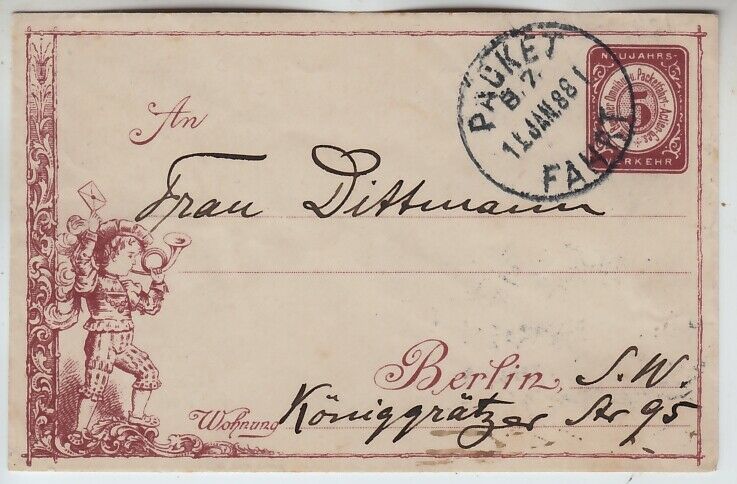 PACKET
B. 7.
1.1.JAN.88 1
FAHRT
NEUJAHRS-
Omnibus u. Packetfahrt-Actien-Ges.
5
VERKEHR
An
Frau Dittmann
Berlin, S. W.
Wohnung Königgrätzer Str 95